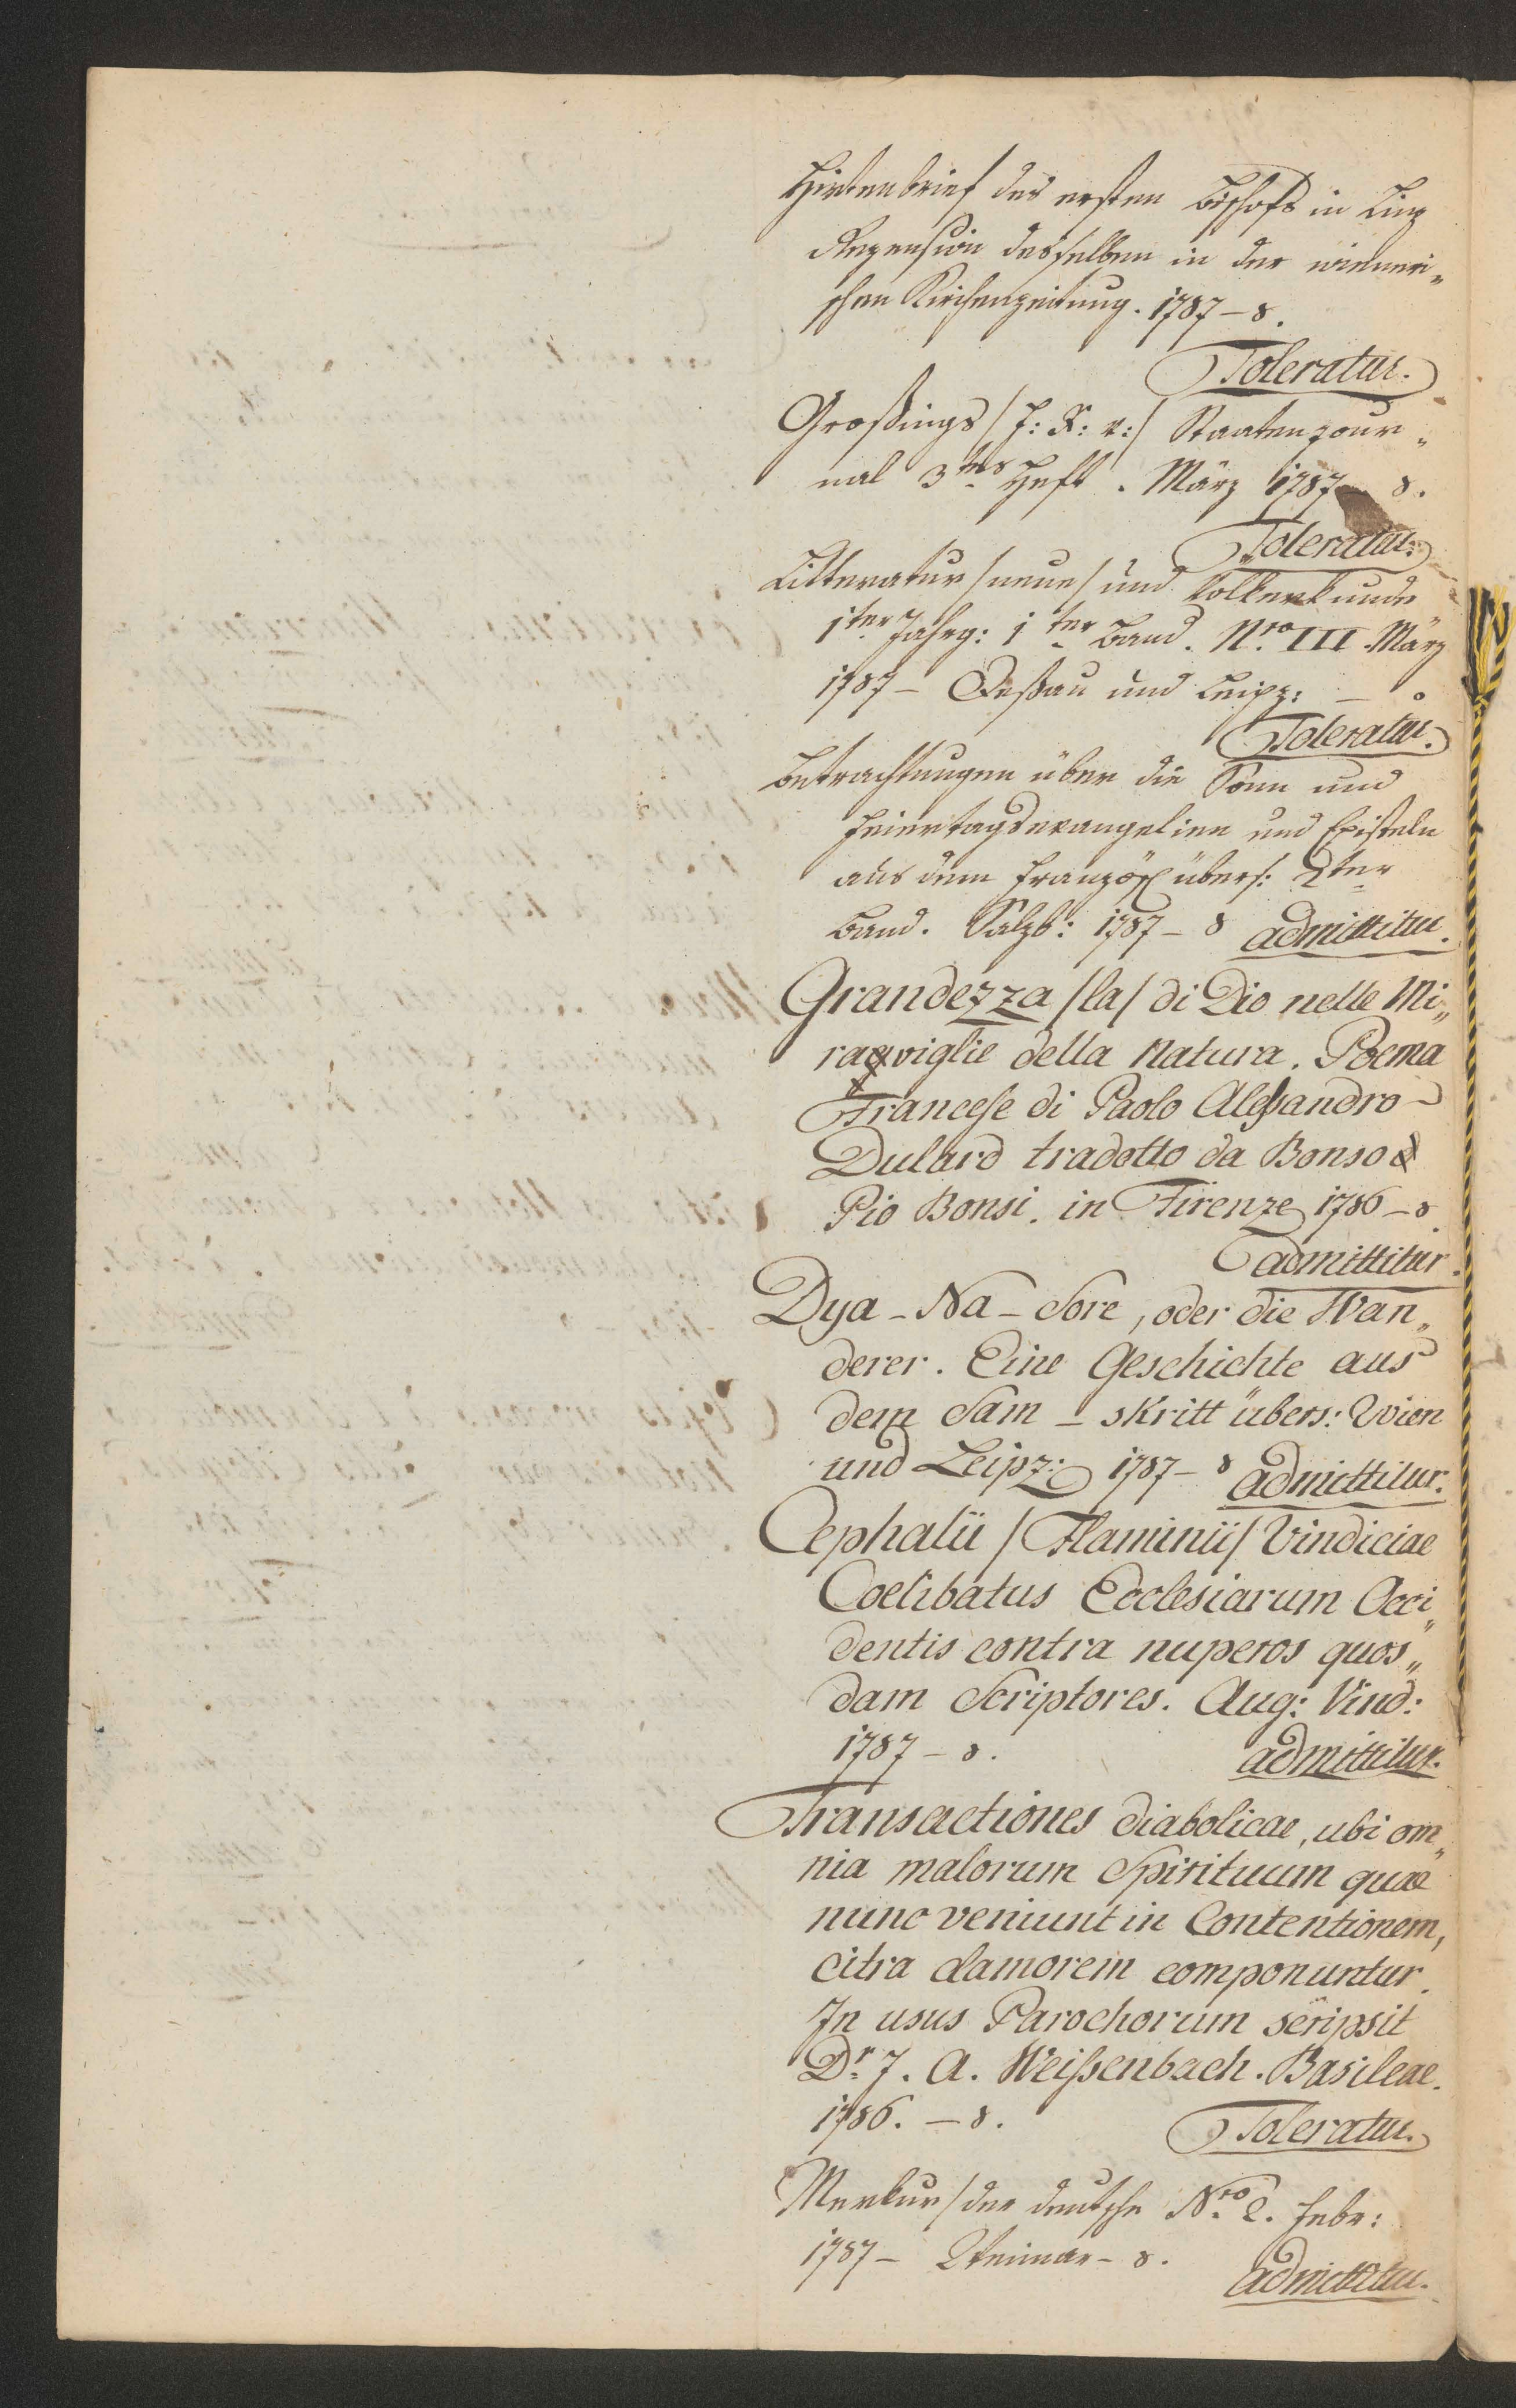 Hirtenbrief des ersten Bischofs in Linz
Rezension desselben in der wieneri„
schen Kirchenzeitung. 1787 – 8.
Toleratur.
Großings /: F: R: v: / Staatenjour„
nal 3tes Heft. März 1787 – 8.
Toleratur.
Litteratur /neue/ und Völkerkunde
1ter Jahrg: 1ter Band. Nro III. März
1787 – Deßau und Leipz: – 8
Toleratur.
Betrachtungen über die Sonn und
Feiertagsevangelien und Episteln
aus dem Französ: übers: 2ter
Band. Salzb: 1787 – 8 admittitur.
Grandezza /la/ di Dio nelle Mi„
raviglie della Natura. Poema
Francese di Paolo Alessandro
Dulard tradotto da Bonso
Pio Bonsi. in Firenze 1786 – 8.
admittitur.
Dya – Na – Sore, oder die Wan„
derer. Eine Geschichte aus
dem Sam – skritt übers: Wien
und Leipz: 1787 – 8 admittitur.
Cephalii /Flaminii/ Vindiciae
Coelibatus Ecclesiarum Occi„
dentis contra nuperos quos„
dam Scriptores. Aug: Vind:
1787 – 8. admittitur.
Transactiones diabolicae, ubi om„
nia malorum Spirituum quae
nunc veniunt in Contentionem,
citra clamorem componuntur.
In usus Parochorum scripsit
Dr J. A. Weißenbach. Basileae.
1786. – 8. Toleratur.
Merkur /der deutsche Nro 2. Febr:
1787 – Weimar – 8. admittitur.